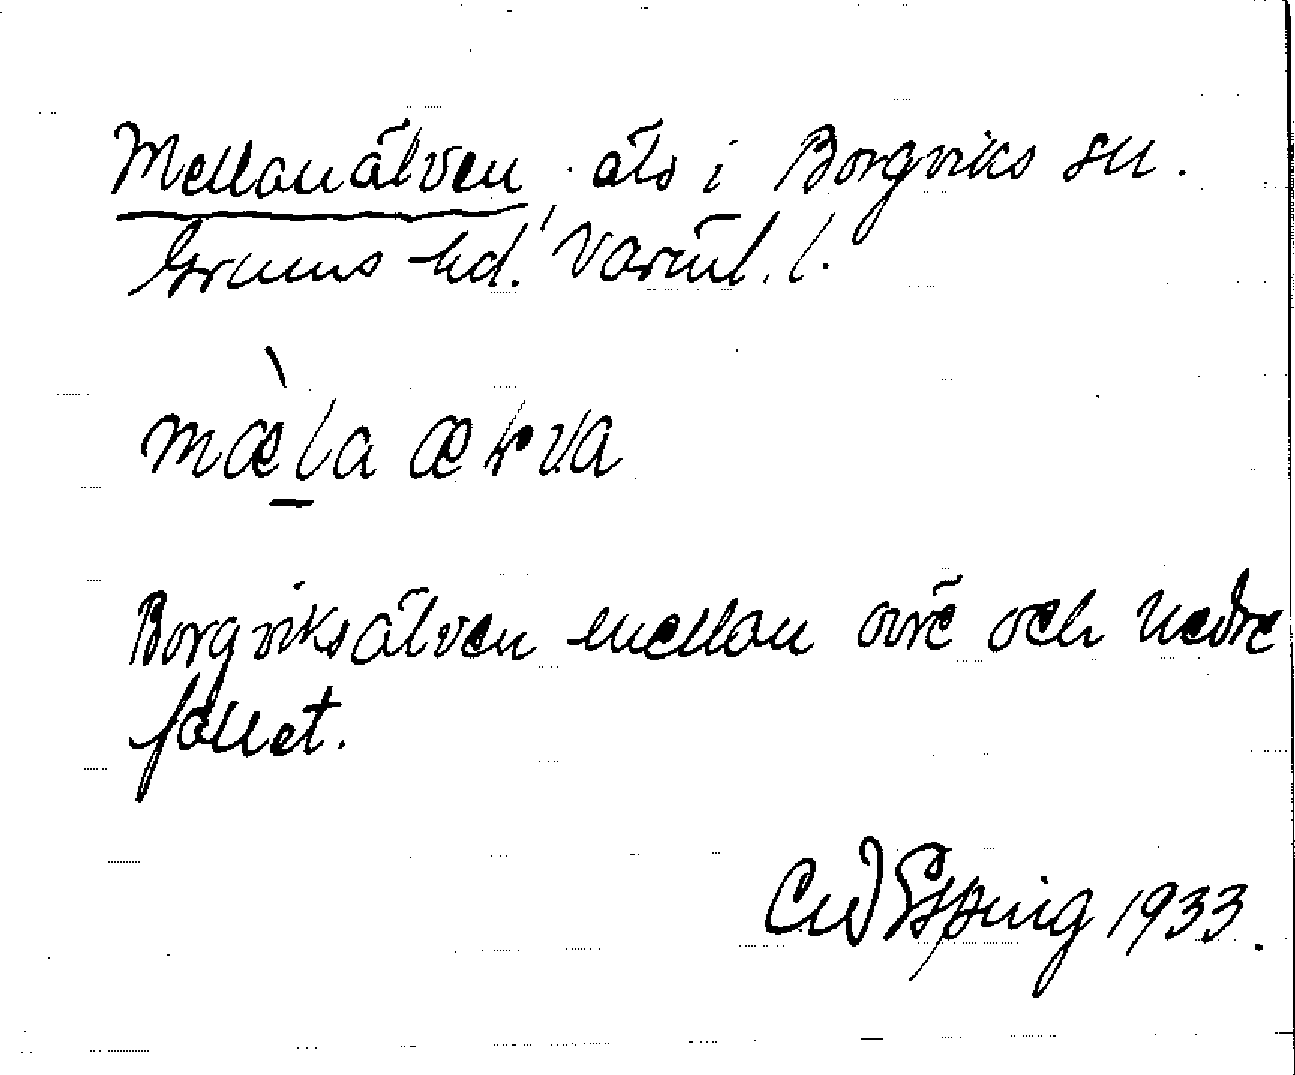 Mellanälven, älv i Borgviks sn.
Grums hd. Värml. l.
mæ̀la æļva
Borgviksälven mellan övre och nedre
fallet.
1933.